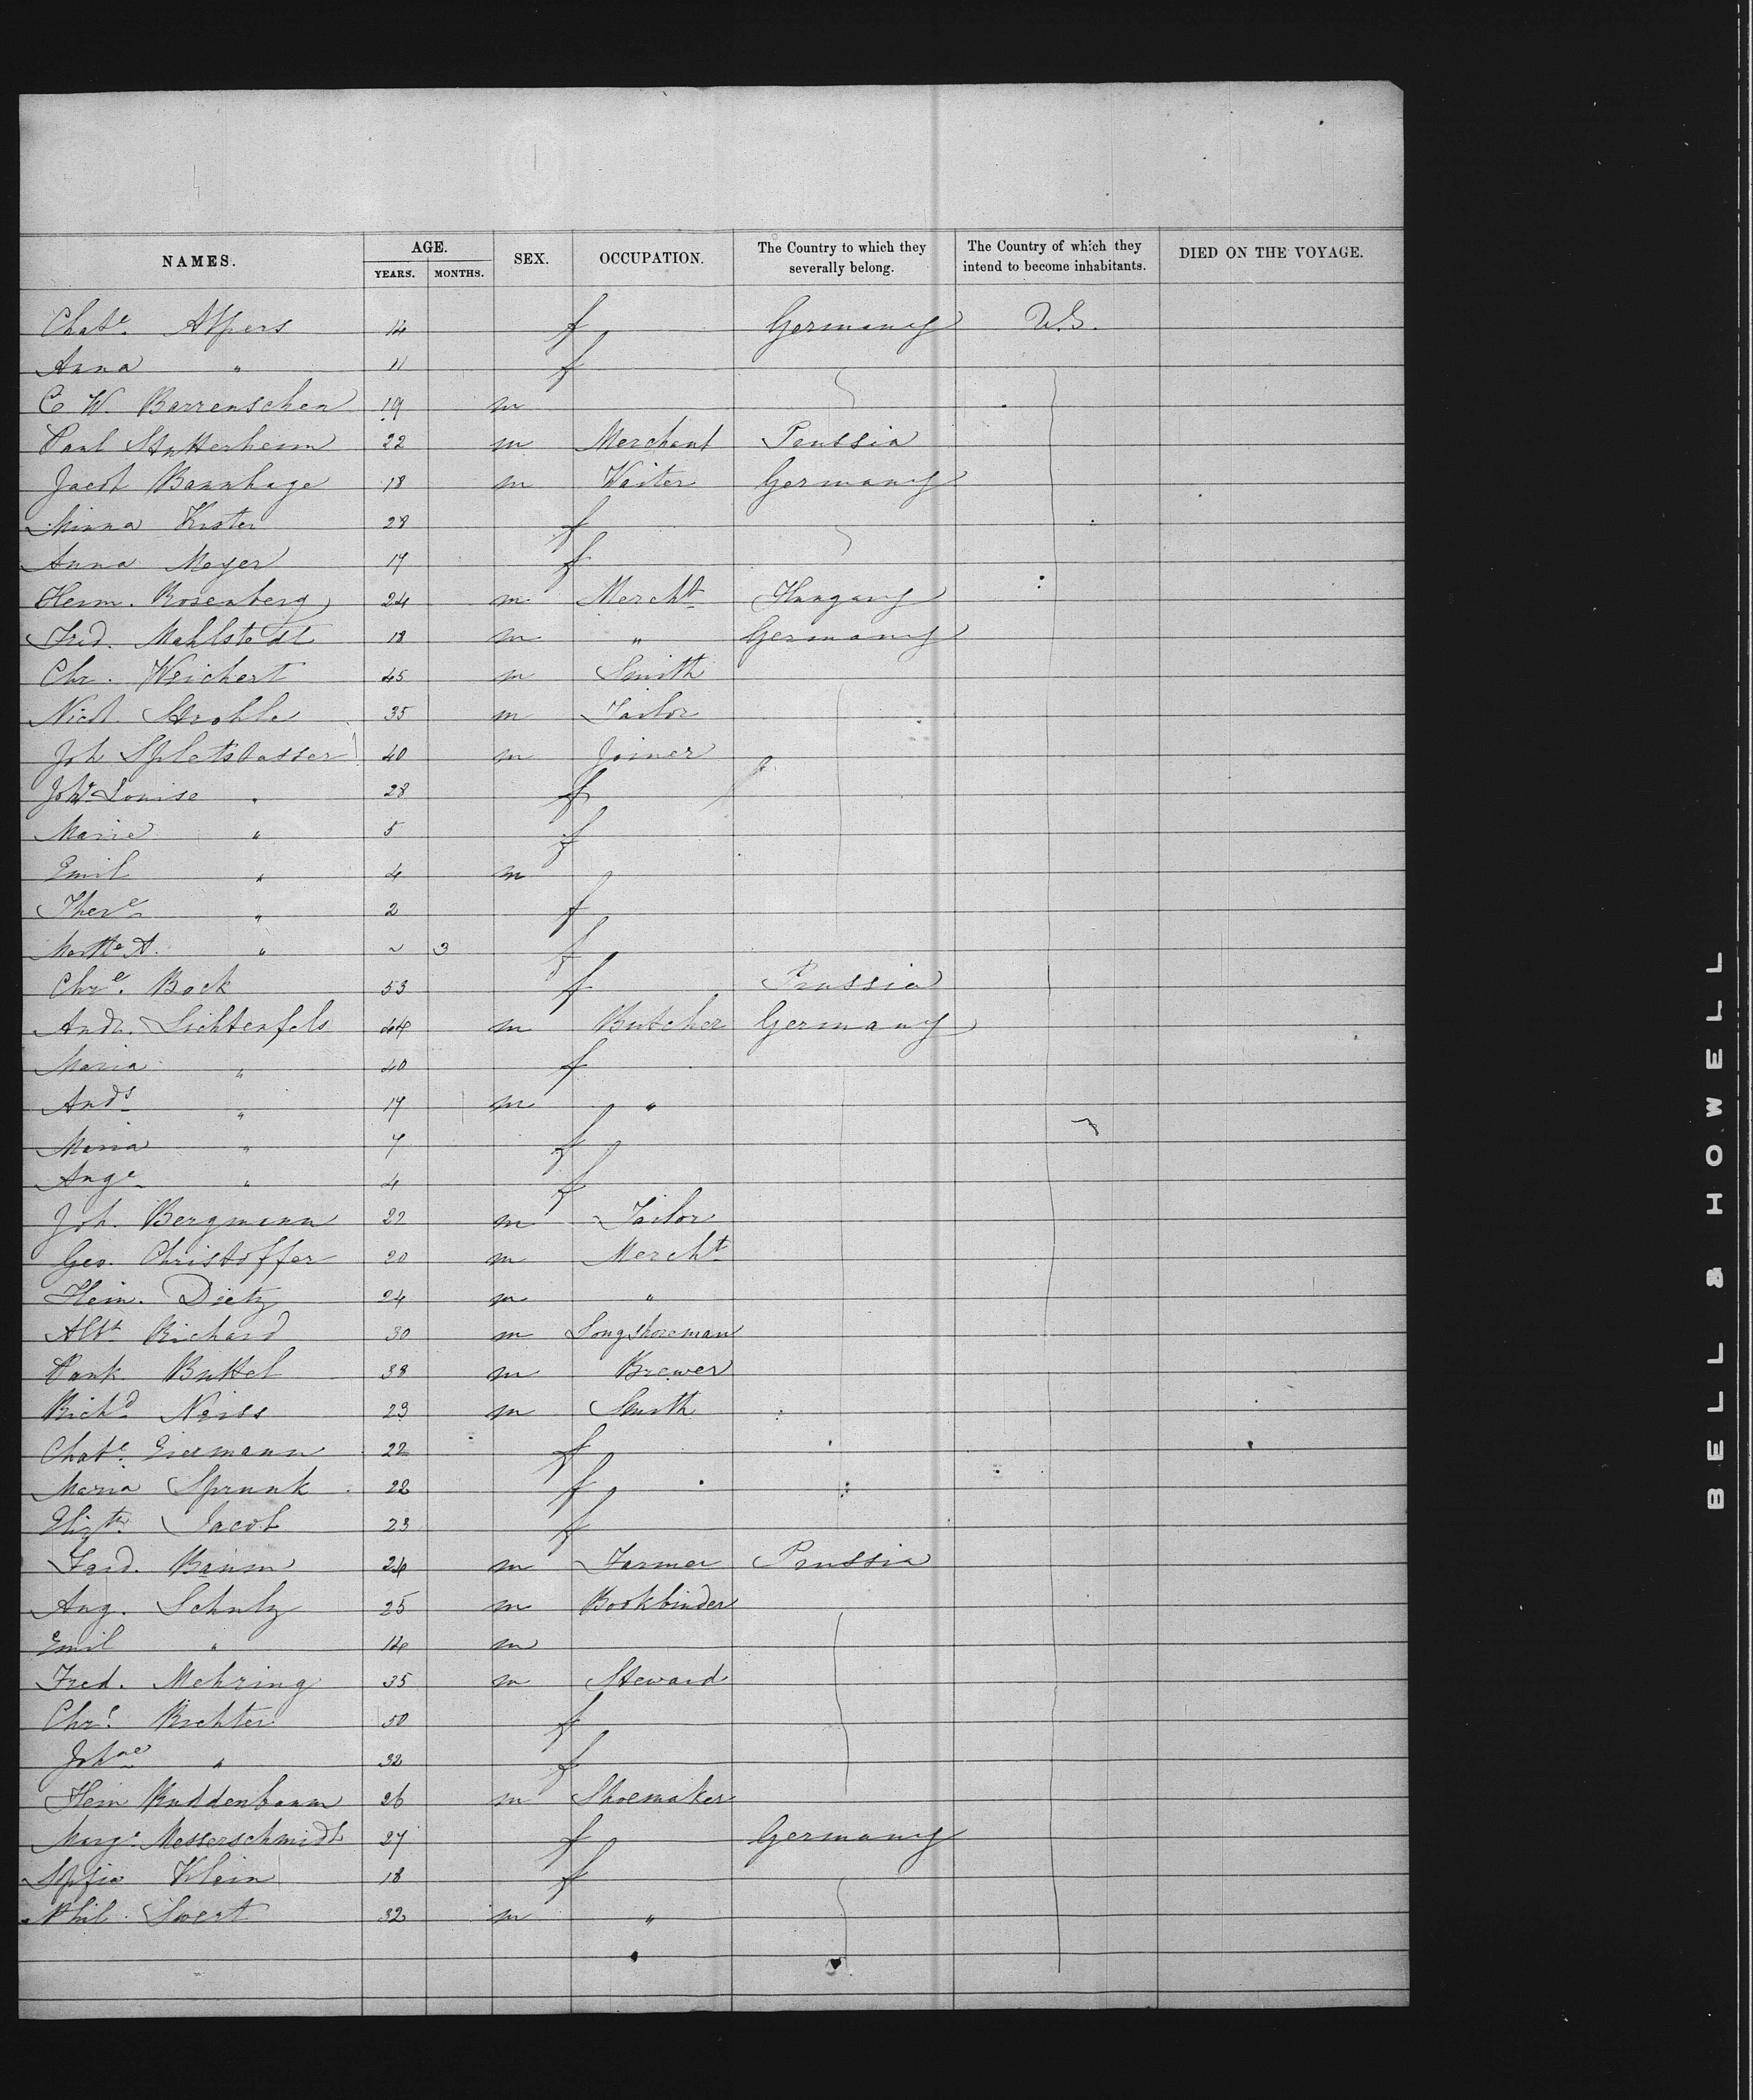 NAMES. AGE. YEARS. MONTHS. SEX. OCCUPATION. The Country to which they severally belong. The Country of which they intend to become inhabitants. DIED ON THE VOYAGE.
Chate. Alpers 14 f Germany U.S.
Anna " 11 f
C W. Barrenschen 19 m
Paul Stutterheim 22 m Merchant Prussia
Jacob Bannhage 18 m Waiter Germany
Minna Kister 28 f
Anna Meyer 17 f
Herm. Rosenberg 24 m Mercht Hungary
Fred. Mahlstedt 18 m " Germany
Chr. Weichert 45 m Smith
Nicol. Strohle 35 m Tailor
Joh Spletstosser 40 m Joiner
Louise " 28 f
Marie " 5 f
Emil " 4 m
There " 2 f
A. " ~ 3 f
Chre. Bock 53 f Prussia
Andr. Lichtenfels 44 m Butcher Germany
Maria " 40 f
Ands " 17 m "
Maria " 7 f
Auge " 4 f
Joh. Bergmann 22 m Tailor
Geo. Christoffer 20 m Mercht
Hein. Dietz 24 m "
Albt Richard 30 m Longshoreman
Pank. Buttel 38 m Brewer
Richd Neiss 23 m Smith
Chate. Eiermann 22 f
Maria Sprunk 22 f
Elizth. Jacob 23 f
Ferd. Baum 24 m Farmer Prussia
Aug. Schulz 25 m Bookbinder
Emil " 14 m
Fred. Mehring 35 m Steward
Chre. Richter 50 f
Johne " 32 f
Hein Buddenbaum 26 m Shoemaker
Marge Messerschmidt 27 f Germany
Sofia Klein 18 f
Phil. 32 m "
BELL & HOWELL